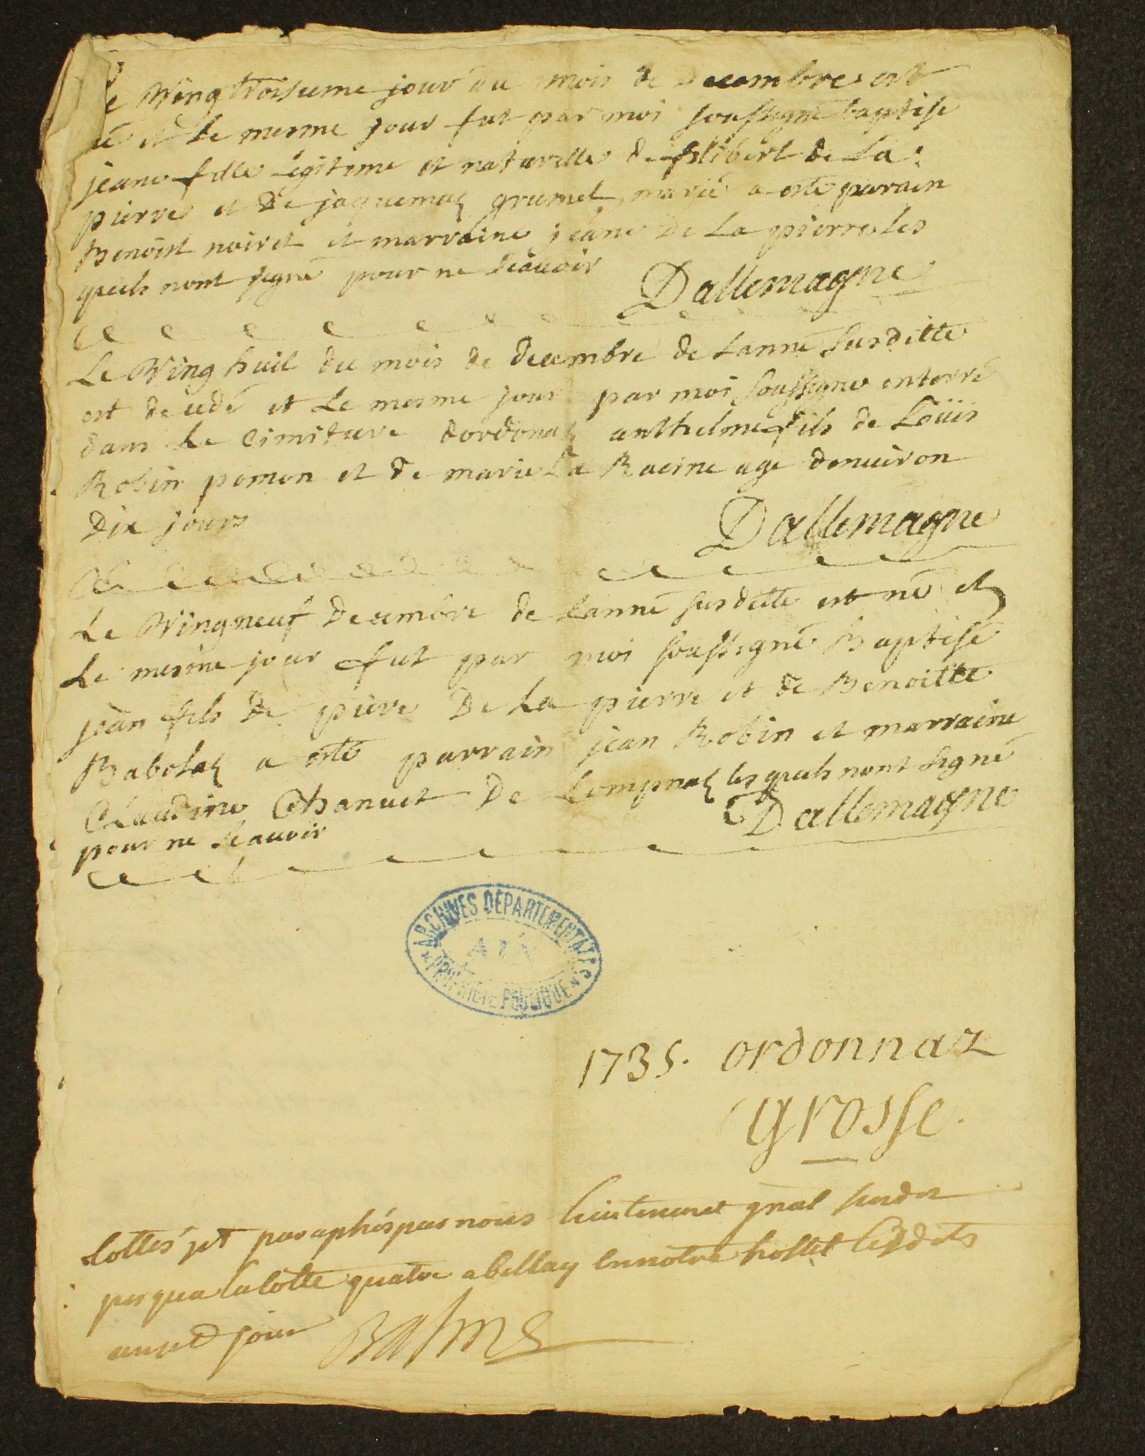 Le Vingtroisieme jour du mois de decembre est
né et le mesme jour fut par moi soussigné baptisé
jeane fille legitime et naturelle de filibert de La
pierre et de jaquemaz grumet, marié a esté parain
Benoist noiret et marraine jeane De La pierre les
quels nont signé pour ne scauoir Dallemagne
Le Ving huil du mois de decembre de Lanné Susditte
est decedé et Le mesme jour par moi soussigne enterré
dans Le Cimitiere dordonaz anthelme fils de Loüis
Robin pomon et de marie La Racine age denuiron
Dix jours Dallemagne
Le Vingneuf Decembre de Lanné susditte est né et
Le mesme jour fut par moi soussigné Baptisé
jean fils de piere De La pierre et de Benoitte
Babolaz a esté parrain jean Robin et marraine
Claudine Chanuet De Lompnaz les quels nont signé
pour ne scauoir Dallemagne
ARCHIVES DEPARTEMENTALES
AIN
PROPRIETE PUBLIQUE
1735. ordonnaz
Grosse.
Cottés et paraphés par nous lieutenant gnal susdit
jusqua la cotte quatre a bellay en notre hostel lesdits
an et jour Balme